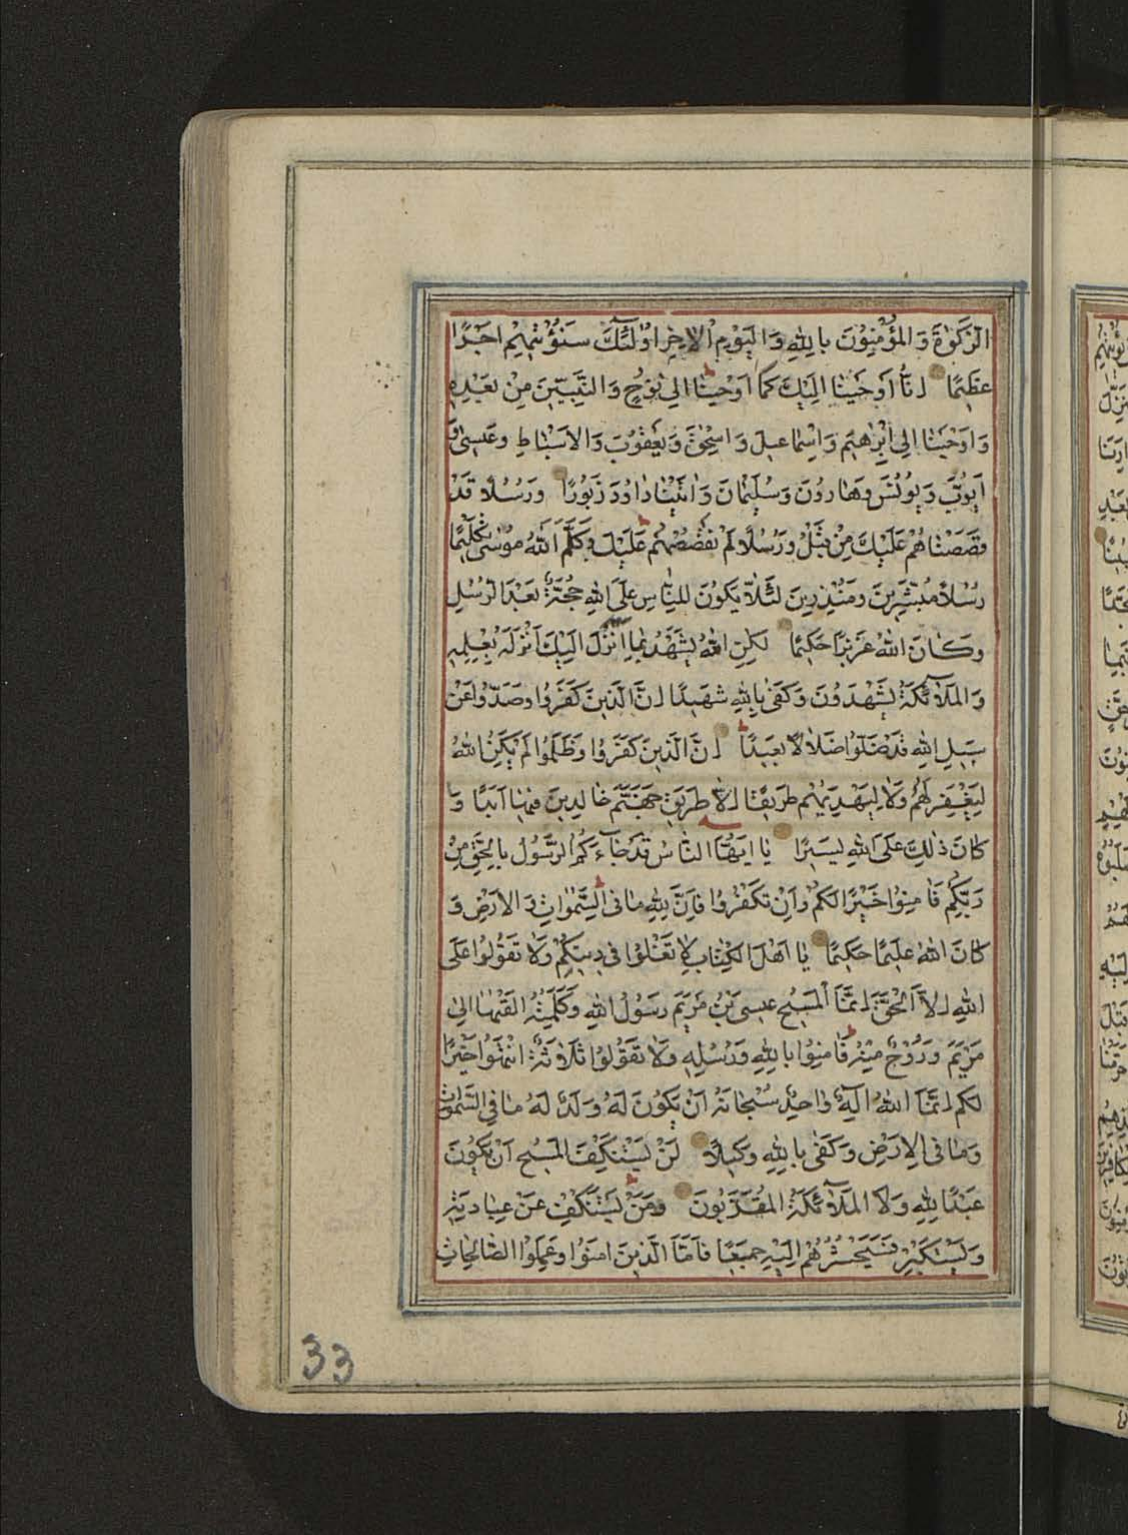 الزَّكٰوةَ وَالْمُؤْمِنُوْنَ بِاللّٰهِ وَالْيَوْمِ الْاٰخِرِ اُولٰٓئِكَ سَنُؤْتِيْهِمْ اَجْرًا
عَظِيْمًا اِنَّا اَوْحَيْنَا اِلَيْكَ كَمَا اَوْحَيْنَا اِلٰى نُوْحٍ وَالنَّبِيّٖنَ مِنْ بَعْدِهٖ
وَاَوْحَيْنَا اِلٰى اِبْرٰهٖيْمَ وَاِسْمَاعِيْلَ وَاِسْحٰقَ وَيَعْقُوْبَ وَالْاَسْبَاطِ وَعِيْسٰى وَ
اَيُّوْبَ وَيُوْنُسَ وَهَارُوْنَ وَسُلَيْمَانَ وَاٰتَيْنَا دَاوُدَ زَبُوْرًا وَرُسُلًا قَدْ
قَصَصْنَاهُمْ عَلَيْكَ مِنْ قَبْلُ وَرُسُلًا لَمْ نَقْصُصْهُمْ عَلَيْكَ وَكَلَّمَ اللّٰهُ مُوْسٰى تَكْلِيْمًا
رُسُلًا مُبَشِّرِيْنَ وَمُنْذِرِيْنَ لِئَلَّا يَكُوْنَ لِلنَّاسِ عَلَى اللّٰهِ حُجَّةٌ بَعْدَ الرُّسُلِ
وَكَانَ اللّٰهُ عَزِيْزًا حَكِيْمًا لٰكِنِ اللّٰهُ يَشْهَدُ بِمَا اَنْزَلَ اِلَيْكَ اَنْزَلَهُ بِعِلْمِهٖ
وَالْمَلٰٓئِكَةُ يَشْهَدُوْنَ وَكَفٰى بِاللّٰهِ شَهِيْدًا اِنَّ الَّذِيْنَ كَفَرُوْا وَصَدُّوْا عَنْ
سَبِيْلِ اللّٰهِ قَدْ ضَلُّوْا ضَلَالًا بَعِيْدًا اِنَّ الَّذِيْنَ كَفَرُوْا وَظَلَمُوْا لَمْ يَكُنِ اللّٰهُ
لِيَغْفِرَ لَهُمْ وَلَا لِيَهْدِيَهُمْ طَرِيْقًا اِلَّا طَرِيْقَ جَهَنَّمَ خَالِدِيْنَ فِيْهَا اَبَدًا وَ
كَانَ ذٰلِكَ عَلَى اللّٰهِ يَسِيْرًا يَا اَيُّهَا النَّاسُ قَدْ جَآءَكُمُ الرَّسُوْلُ بِالْحَقِّ مِنْ
رَبِّكُمْ فَاٰمِنُوْا خَيْرًا لَكُمْ وَاِنْ تَكْفُرُوْا فَاِنَّ لِلّٰهِ مَا فِى السَّمٰوَاتِ وَالْاَرْضِ وَ
كَانَ اللّٰهُ عَلِيْمًا حَكِيْمًا يَا اَهْلَ الْكِتَابِ لَا تَغْلُوْا فِى دِيْنِكُمْ وَلَا تَقُوْلُوْا عَلَى
اللّٰهِ اِلَّا الْحَقَّ اِنَّمَا الْمَسِيْحُ عِيْسَى بْنُ مَرْيَمَ رَسُوْلُ اللّٰهِ وَكَلِمَتُهُ اَلْقٰيهَا اِلٰى
مَرْيَمَ وَرُوْحٌ مِنْهُ فَاٰمِنُوْا بِاللّٰهِ وَرُسُلِهٖ وَلَا تَقُوْلُوْا ثَلَاثَةٌ اِنْتَهُوْا خَيْرًا
لَكُمْ اِنَّمَا اللّٰهُ اِلٰهٌ وَاحِدٌ سُبْحَانَهُ اَنْ يَكُوْنَ لَهُ وَلَدٌ لَهُ مَا فِى السَّمٰوَاتِ
وَمَا فِى الْاَرْضِ وَكَفٰى بِاللّٰهِ وَكِيْلًا لَنْ يَسْتَنْكِفَ الْمَسِيْحُ اَنْ يَكُوْنَ
عَبْدًا لِلّٰهِ وَلَا الْمَلٰٓئِكَةُ الْمُقَرَّبُوْنَ وَمَنْ يَسْتَنْكِفْ عَنْ عِبَادَتِهٖ
وَيَسْتَكْبِرْ فَسَيَحْشُرُهُمْ اِلَيْهِ جَمِيْعًا فَاَمَّا الَّذِيْنَ اٰمَنُوْا وَعَمِلُوا الصَّالِحَاتِ
33